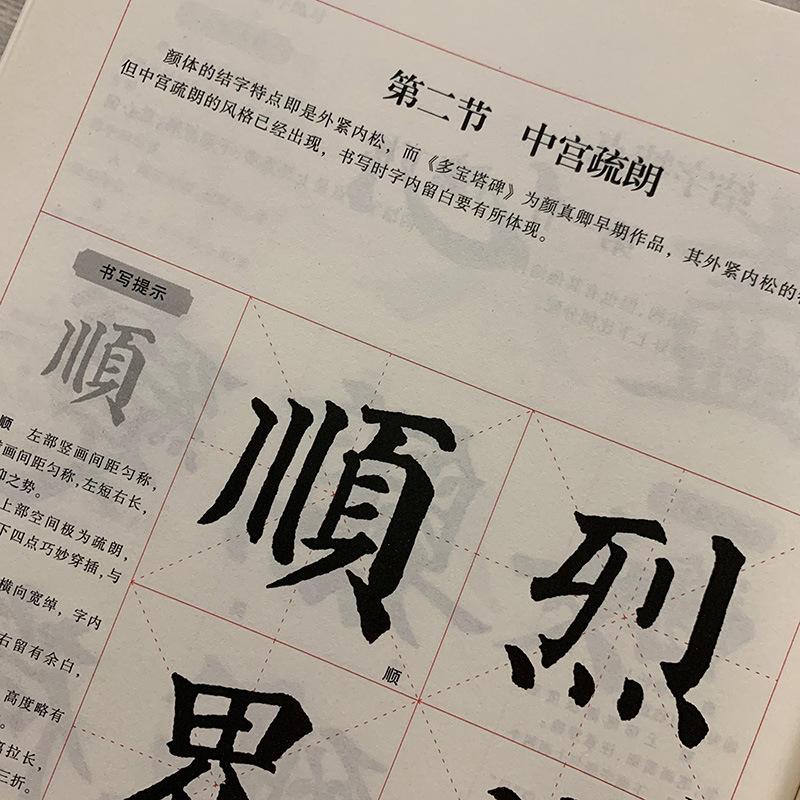 第二节 中宫疏朗
颜体的结字特点即是外紧内松，而《多宝塔碑》为颜真卿早期作品，其外紧内松的
但中宫疏朗的风格已经出现，书写时字内留白要有所体现。
书写提示
順
顺 左部竖画间距匀称，
画间距匀称，左短右长，
仰之势。
上部空间极为疏朗，
下四点巧妙穿插，与
横向宽绰，字内
右留有余白，
高度略有
。
高拉长，
三折。
順
顺
烈
界